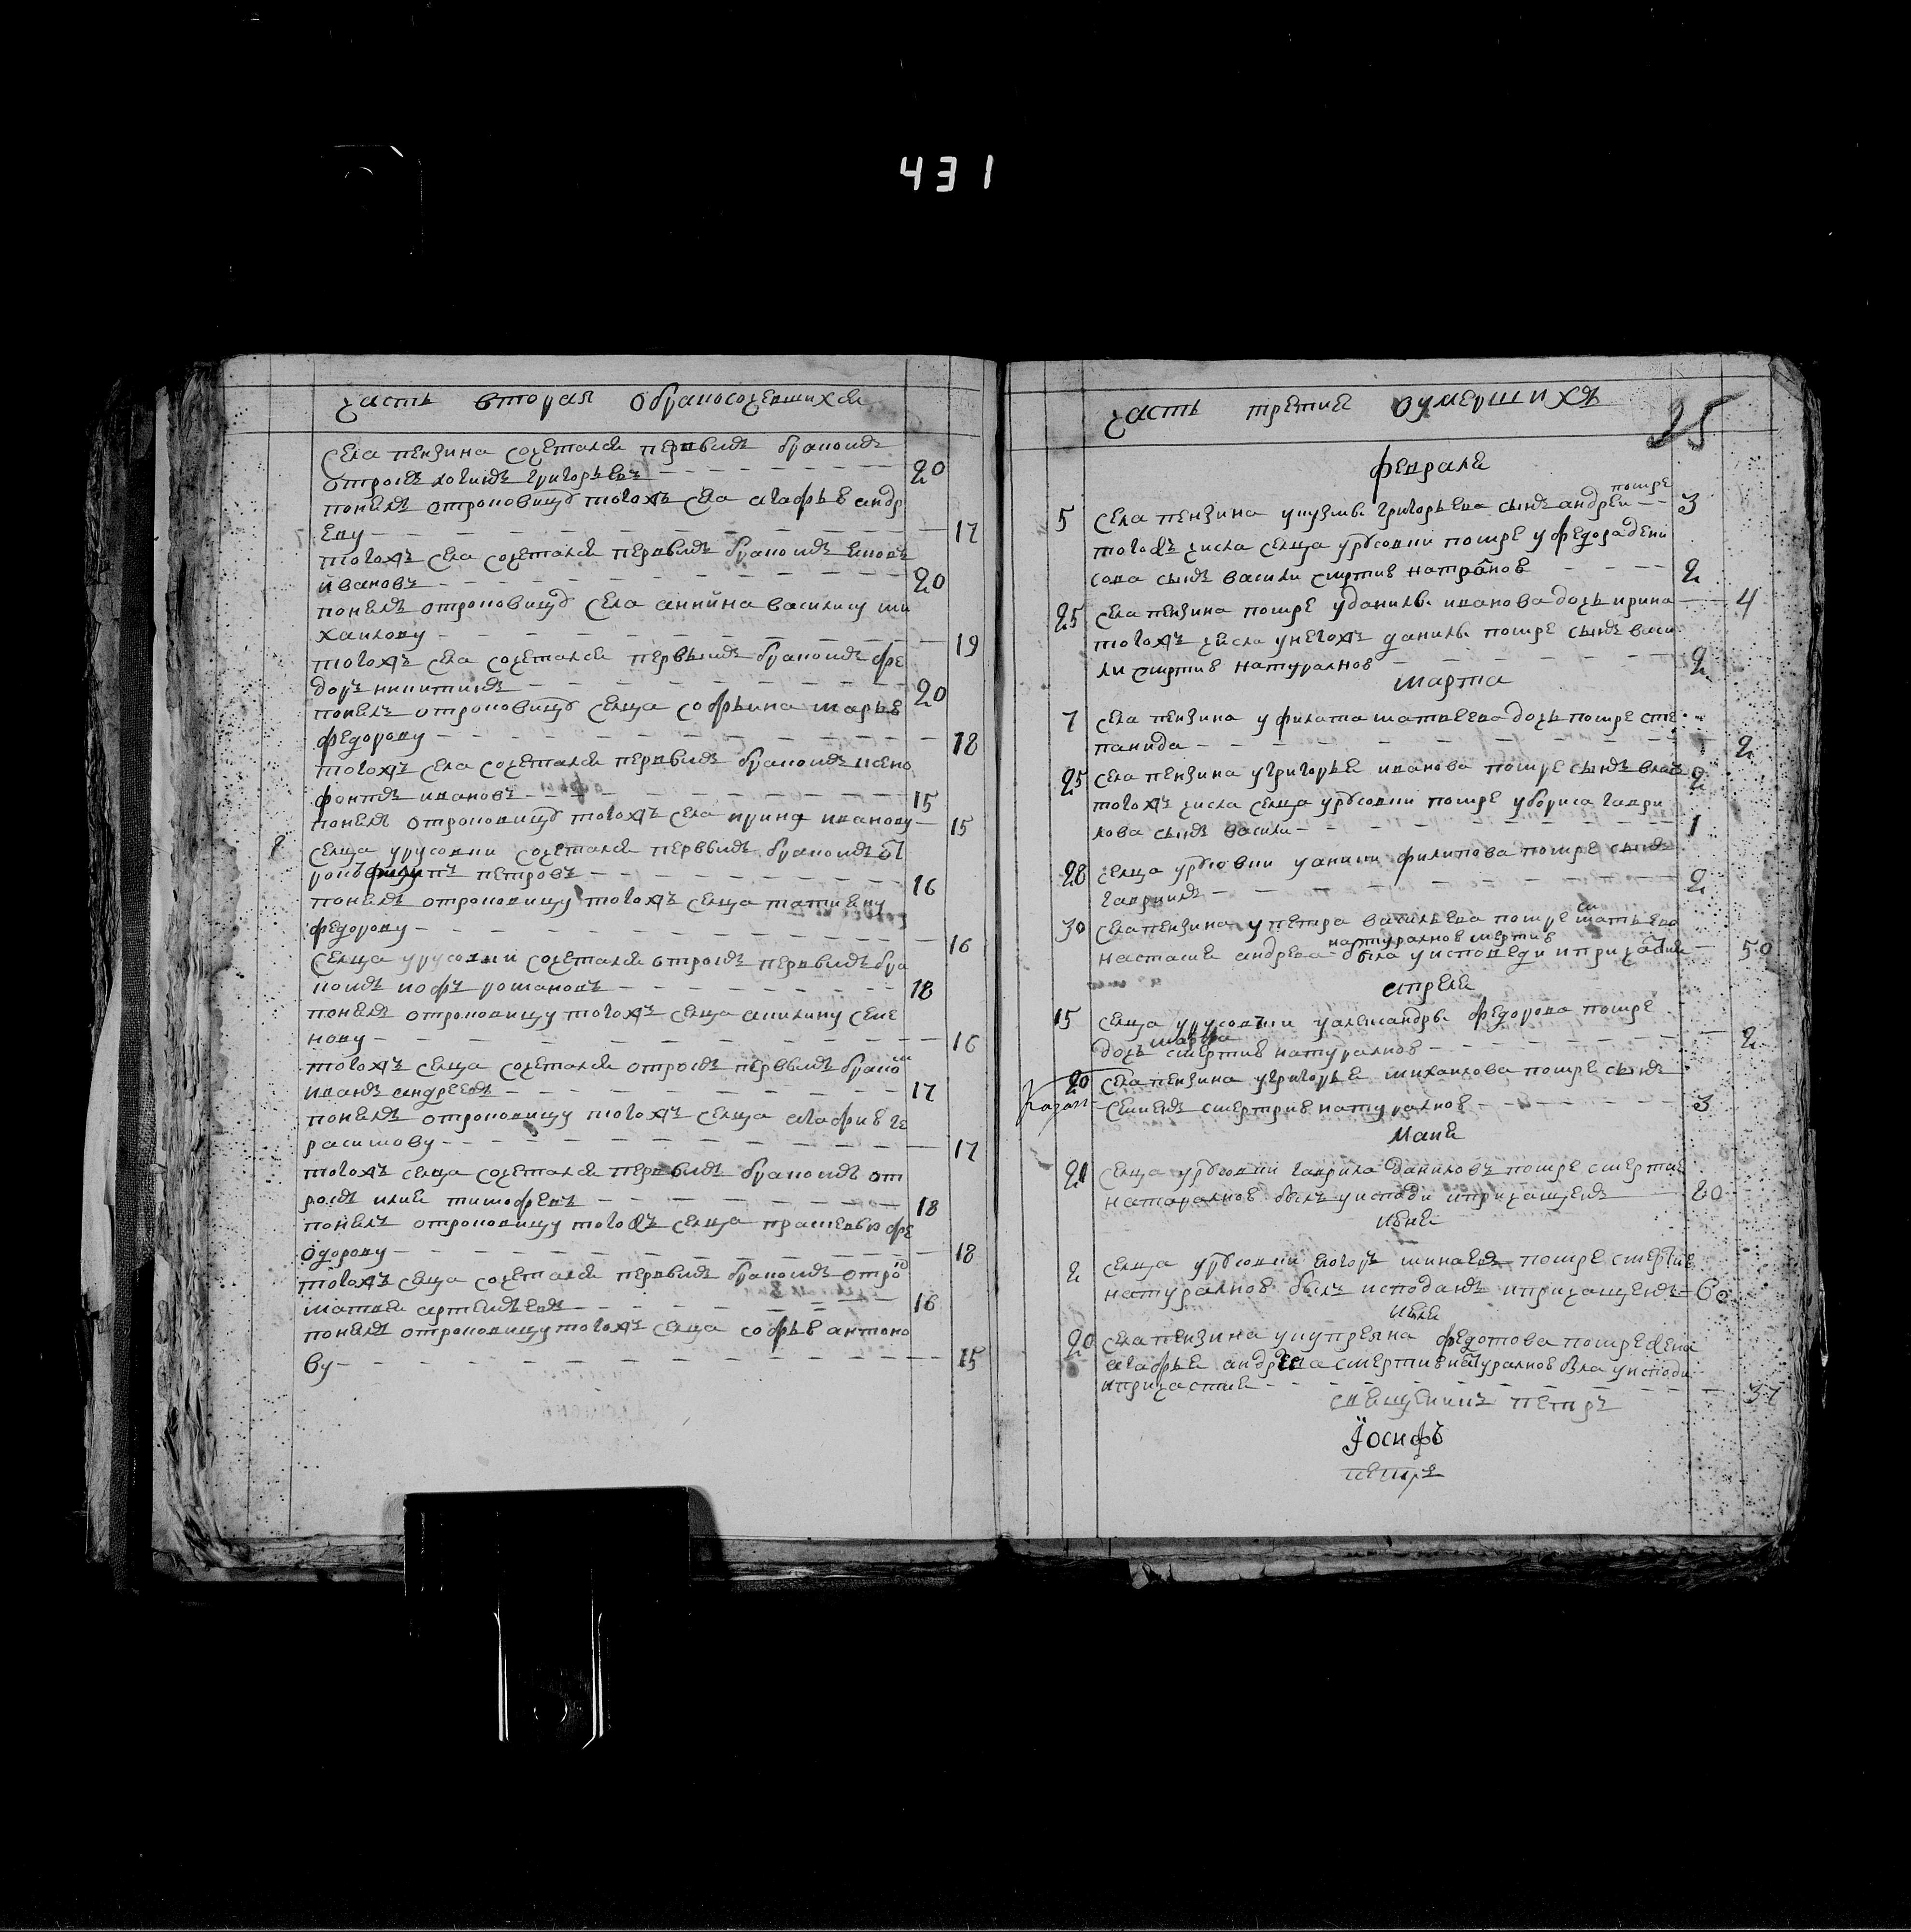 431
часть вторая обракосочевшихся
села пензина сочетался первымъ бракомъ
отрокъ логинъ григорьевъ 20
понялъ отроковицу тогожъ села агафью андр
еву 17
тогожъ села сочетался первымъ бракомъ
ивановъ 20
понялъ отроковицу села аннина василису ми
хаилову 19
тогожъ села сочетался первымъ бракомъ фе
доръ никитинъ 20
понялъ отроковицу селца софьина марью
федорову 18
тогожъ села сочетался первымъ бракомъ ксено
фонтъ ивановъ 15
понялъ отроковицу тогожъ села ирину иванову 15
селца урусовки сочетался первымъ бракомъ от
рокъ филипъ петровъ 16
понялъ отроковицу тогожъ селца татияну
федорову 16
селца урусовки сочетался отрокъ первымъ бра
комъ иофъ романовъ 18
понялъ отроковицу тогожъ селца акилину семе
нову 16
тогожъ селца сочетался отрокъ первымъ брако
иванъ андреевъ 17
понялъ отроковицу тогожъ селца агафию ге
расимову 17
тогожъ селца сочетался первымъ бракомъ от
рокъ илия тимофеевъ 18
понялъ отроковицу тогожъ селца прасковью фе
одорову 18
тогожъ селца сочетался первымъ бракомъ отро
матвеи артемьевъ 16
понялъ отроковицу тогожъ селца софью антоно
ву 15
часть третия оумершихъ
25
февраля
помре
5 села пензина укузмы григорьева сынъ андреи 3
тогожъ числа селца урусовки помре уфедора дени
сова сынъ василии смртию натрално 2
25 села пензина помре уданилы иванова дочь ирина 4
тогожъ числа унегожъ данилы помре сынъ васи
ли смртию натурално 2
марта
7 села пензина уфилата матвеева дочь помре сте
панида 2
25 села пензина угригорья иванова помре сынъ 2
тогожъ числа селца урусовки помре убориса гаври
лова сынъ васили 1
28 селца урусовки уакима филипова помре сынъ
гавриилъ 2
30 села пензина упетра васильева помре матьево
натурално смертию
настасия андреева была уисповеди иприча 50
апреля
15 селца урусовки уалександры федорова помре
марфа
дочь смертию натурално 2
20 села пензина угригорья михаилова помре сынъ
семенъ смертрию натурално 3
маия
21 селца урусовки гаврила даниловъ помре смертию
натаралною былъ уисповди ипричащенъ 20
июня
2 селца урусовки егоръ минаевъ помре смертию
натуралною былъ исподанъ ипричащенъ 60
июля
20 села пензина укупреяна федотова помре жена
агафья андреева смертию натуралною была уисподи
ипричастия 37
священникъ петръ
Іосифъ
петръ